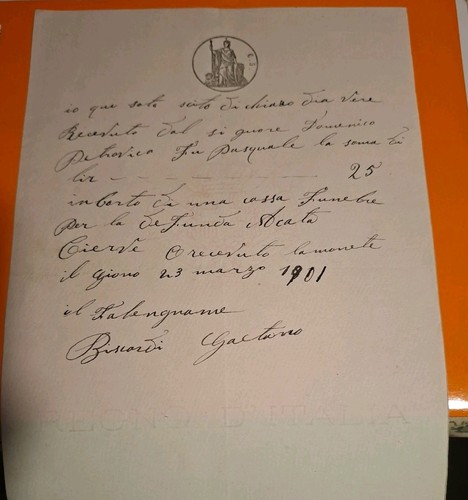 io que soto scito di chiaro dia vere
Receduto dal si gnore Domenico
Petrosica Fu Pasquale la soma di
lir - - - - - - 25
inborto di una cassa Funebre
per la deFunda Acata
Cierve O receduto lamonete
il giono 23 marzo 1901
il Falengname
Biscardi Gaetano
REGNO D'ITALIA